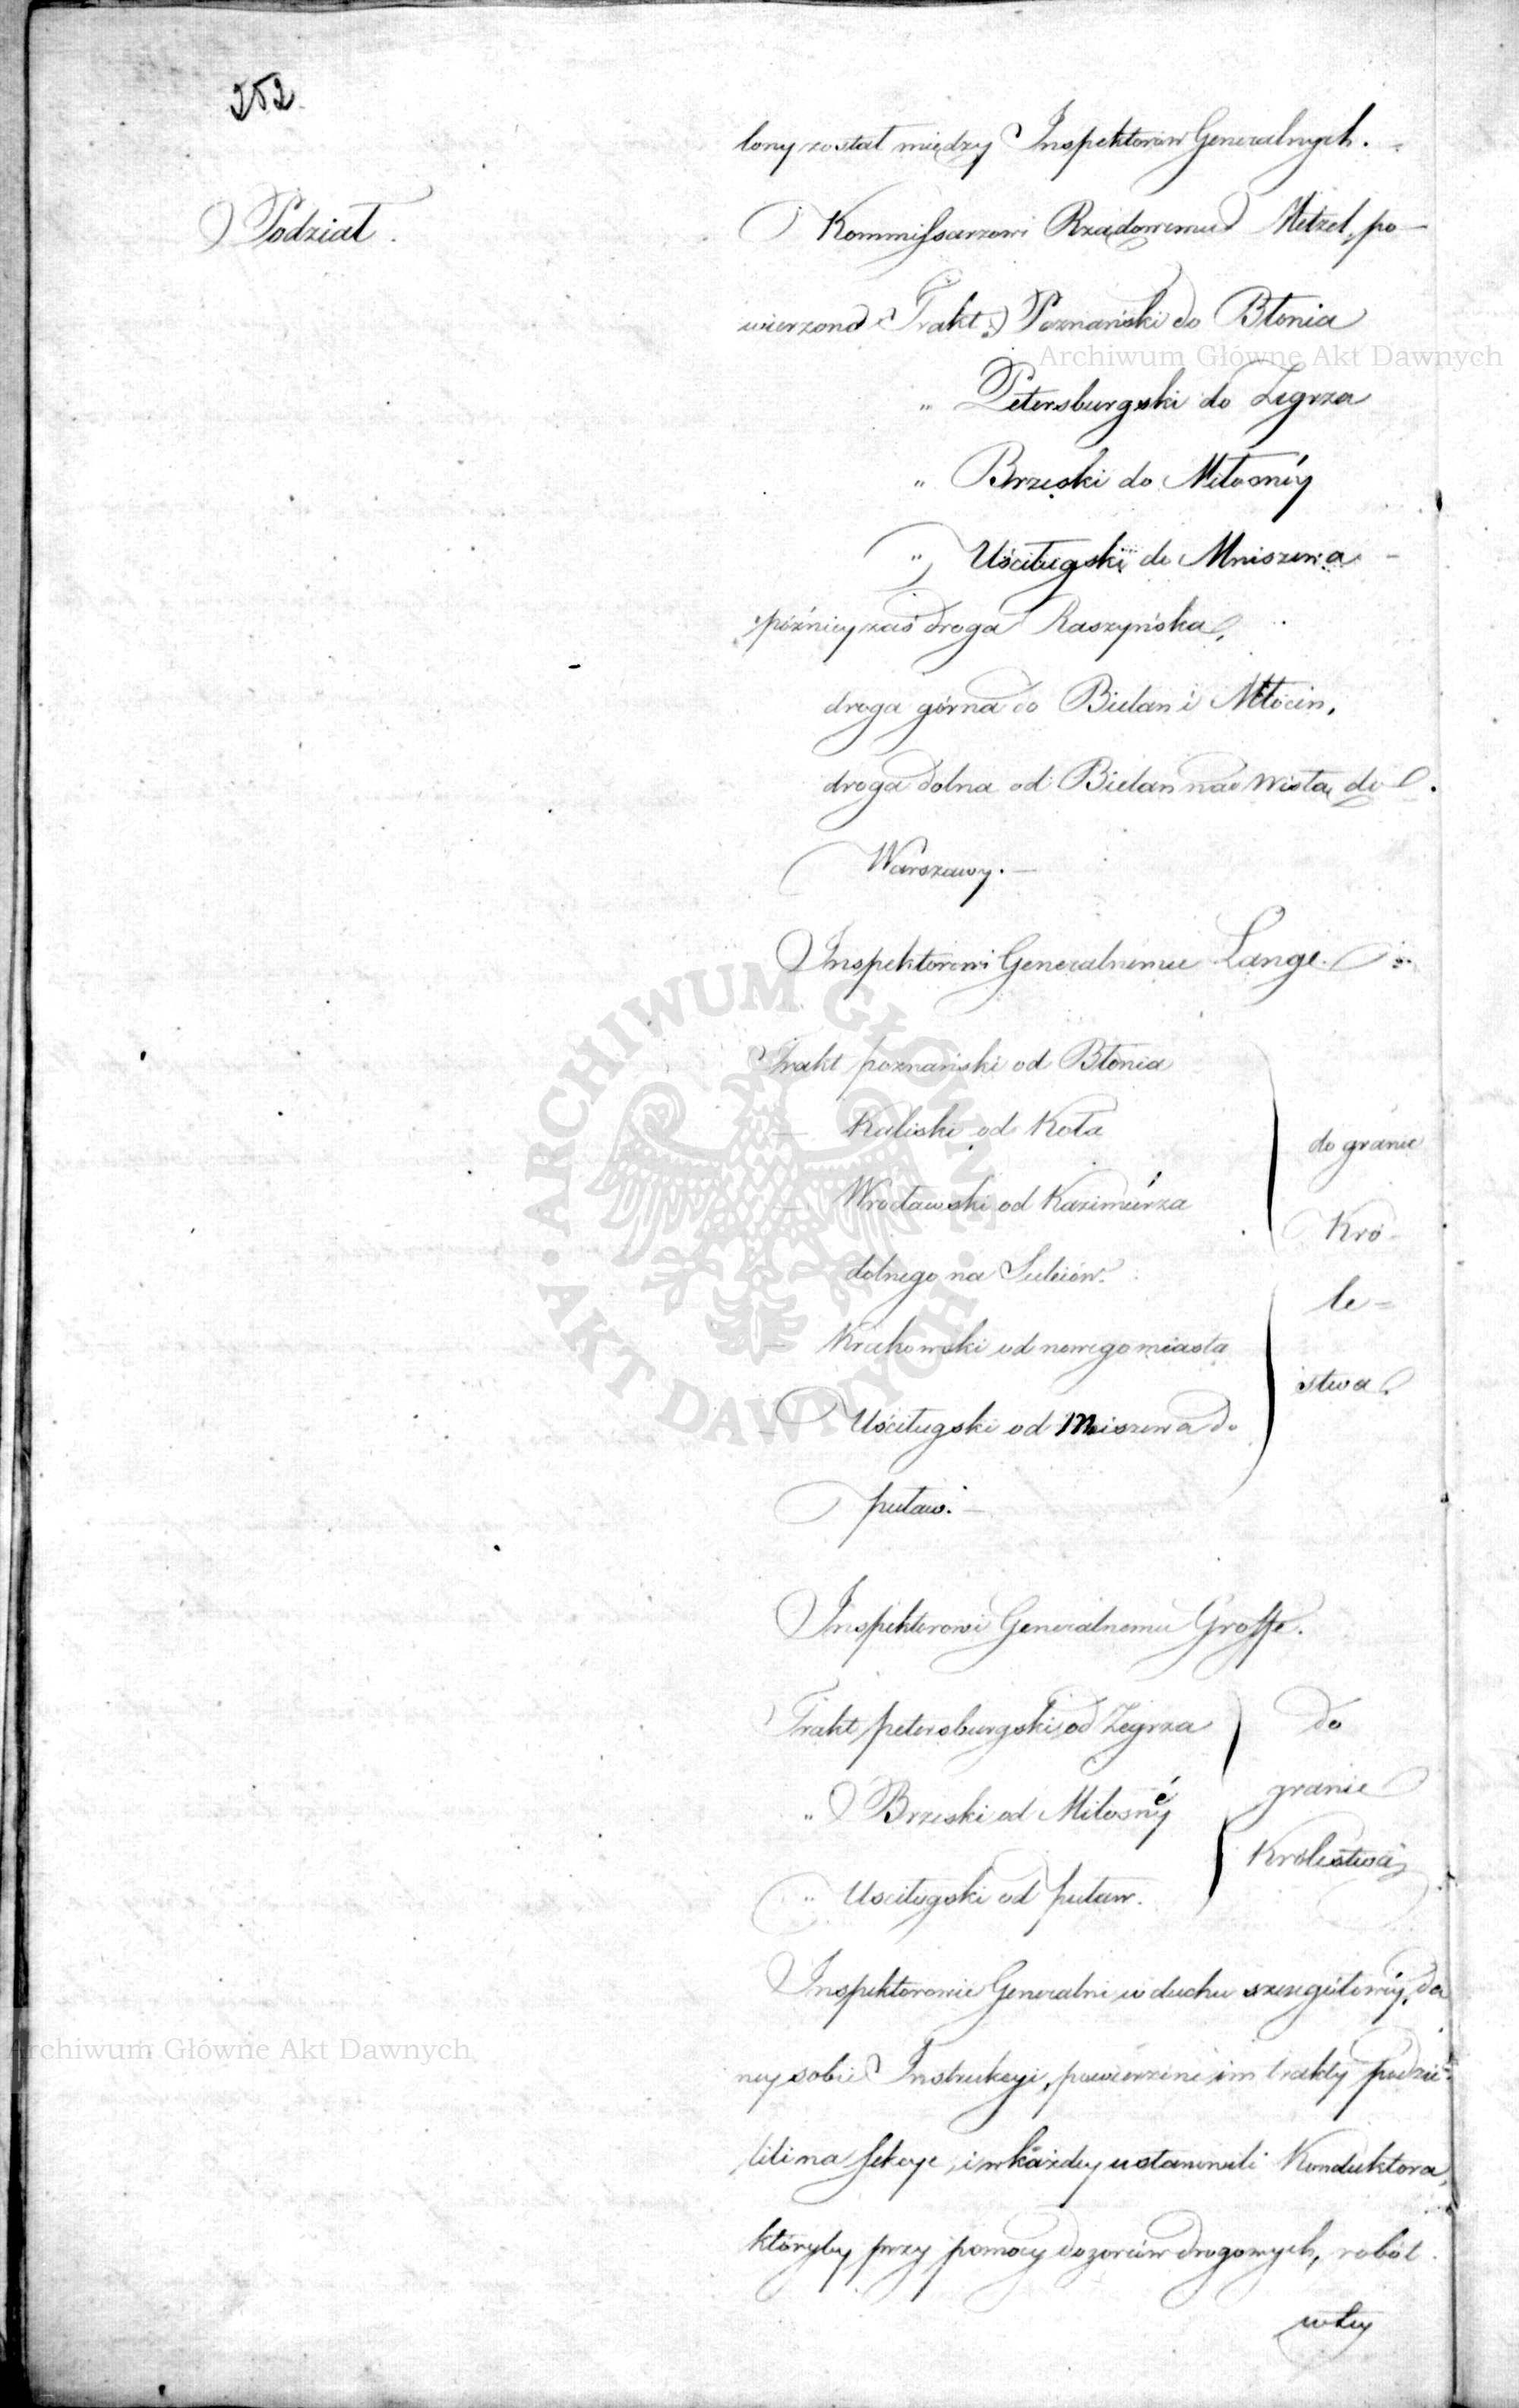 252.
Podział.
lony został między Inspektorów Generalnych.
Kommissarzowi Rządowemu Metzel, po-
wierzono Trakt: Poznański do Błonia
Archiwum Główne Akt Dawnych
" Petersburgski do Zegrza
" Brzeski do Miłosnéy
" Uściługski do Mniszewa -
późniéy zaś droga Raszyńska,
droga górna do Bielan i Młocin,
droga dolna od Bielan nad Wisłą do
Warszawy. -
Inspektorowi Generalnemu Lange.
Trakt poznański od Błonia
— Kaliski od Koła
— Wrocławski od Kazimierza
dolnego na Sulejów.
— Krakowski od nowego miasta
— Uściługski od Mniszewa do
puław. -
do granic
Kró-
le=
stwa.
ARCHIWUM GŁÓWNE · AKT DAWNYCH ·
Inspektorowi Generalnemu Grosse.
Trakt petersburgski od Zegrza
" Brzeski od Miłosnéy
" Usciługski od puław.
do
granic
Królestwa;
Inspektorowie Generalni w duchu szczegółowéy, da
néy sobie Instrukcyi, powierzone im trakty podzie-
lili na sekcye, i w każdéy ustanowili Konduktora,
któryby przy pomocy dozorców drogowych, robót
Archiwum Główne Akt Dawnych
w téy